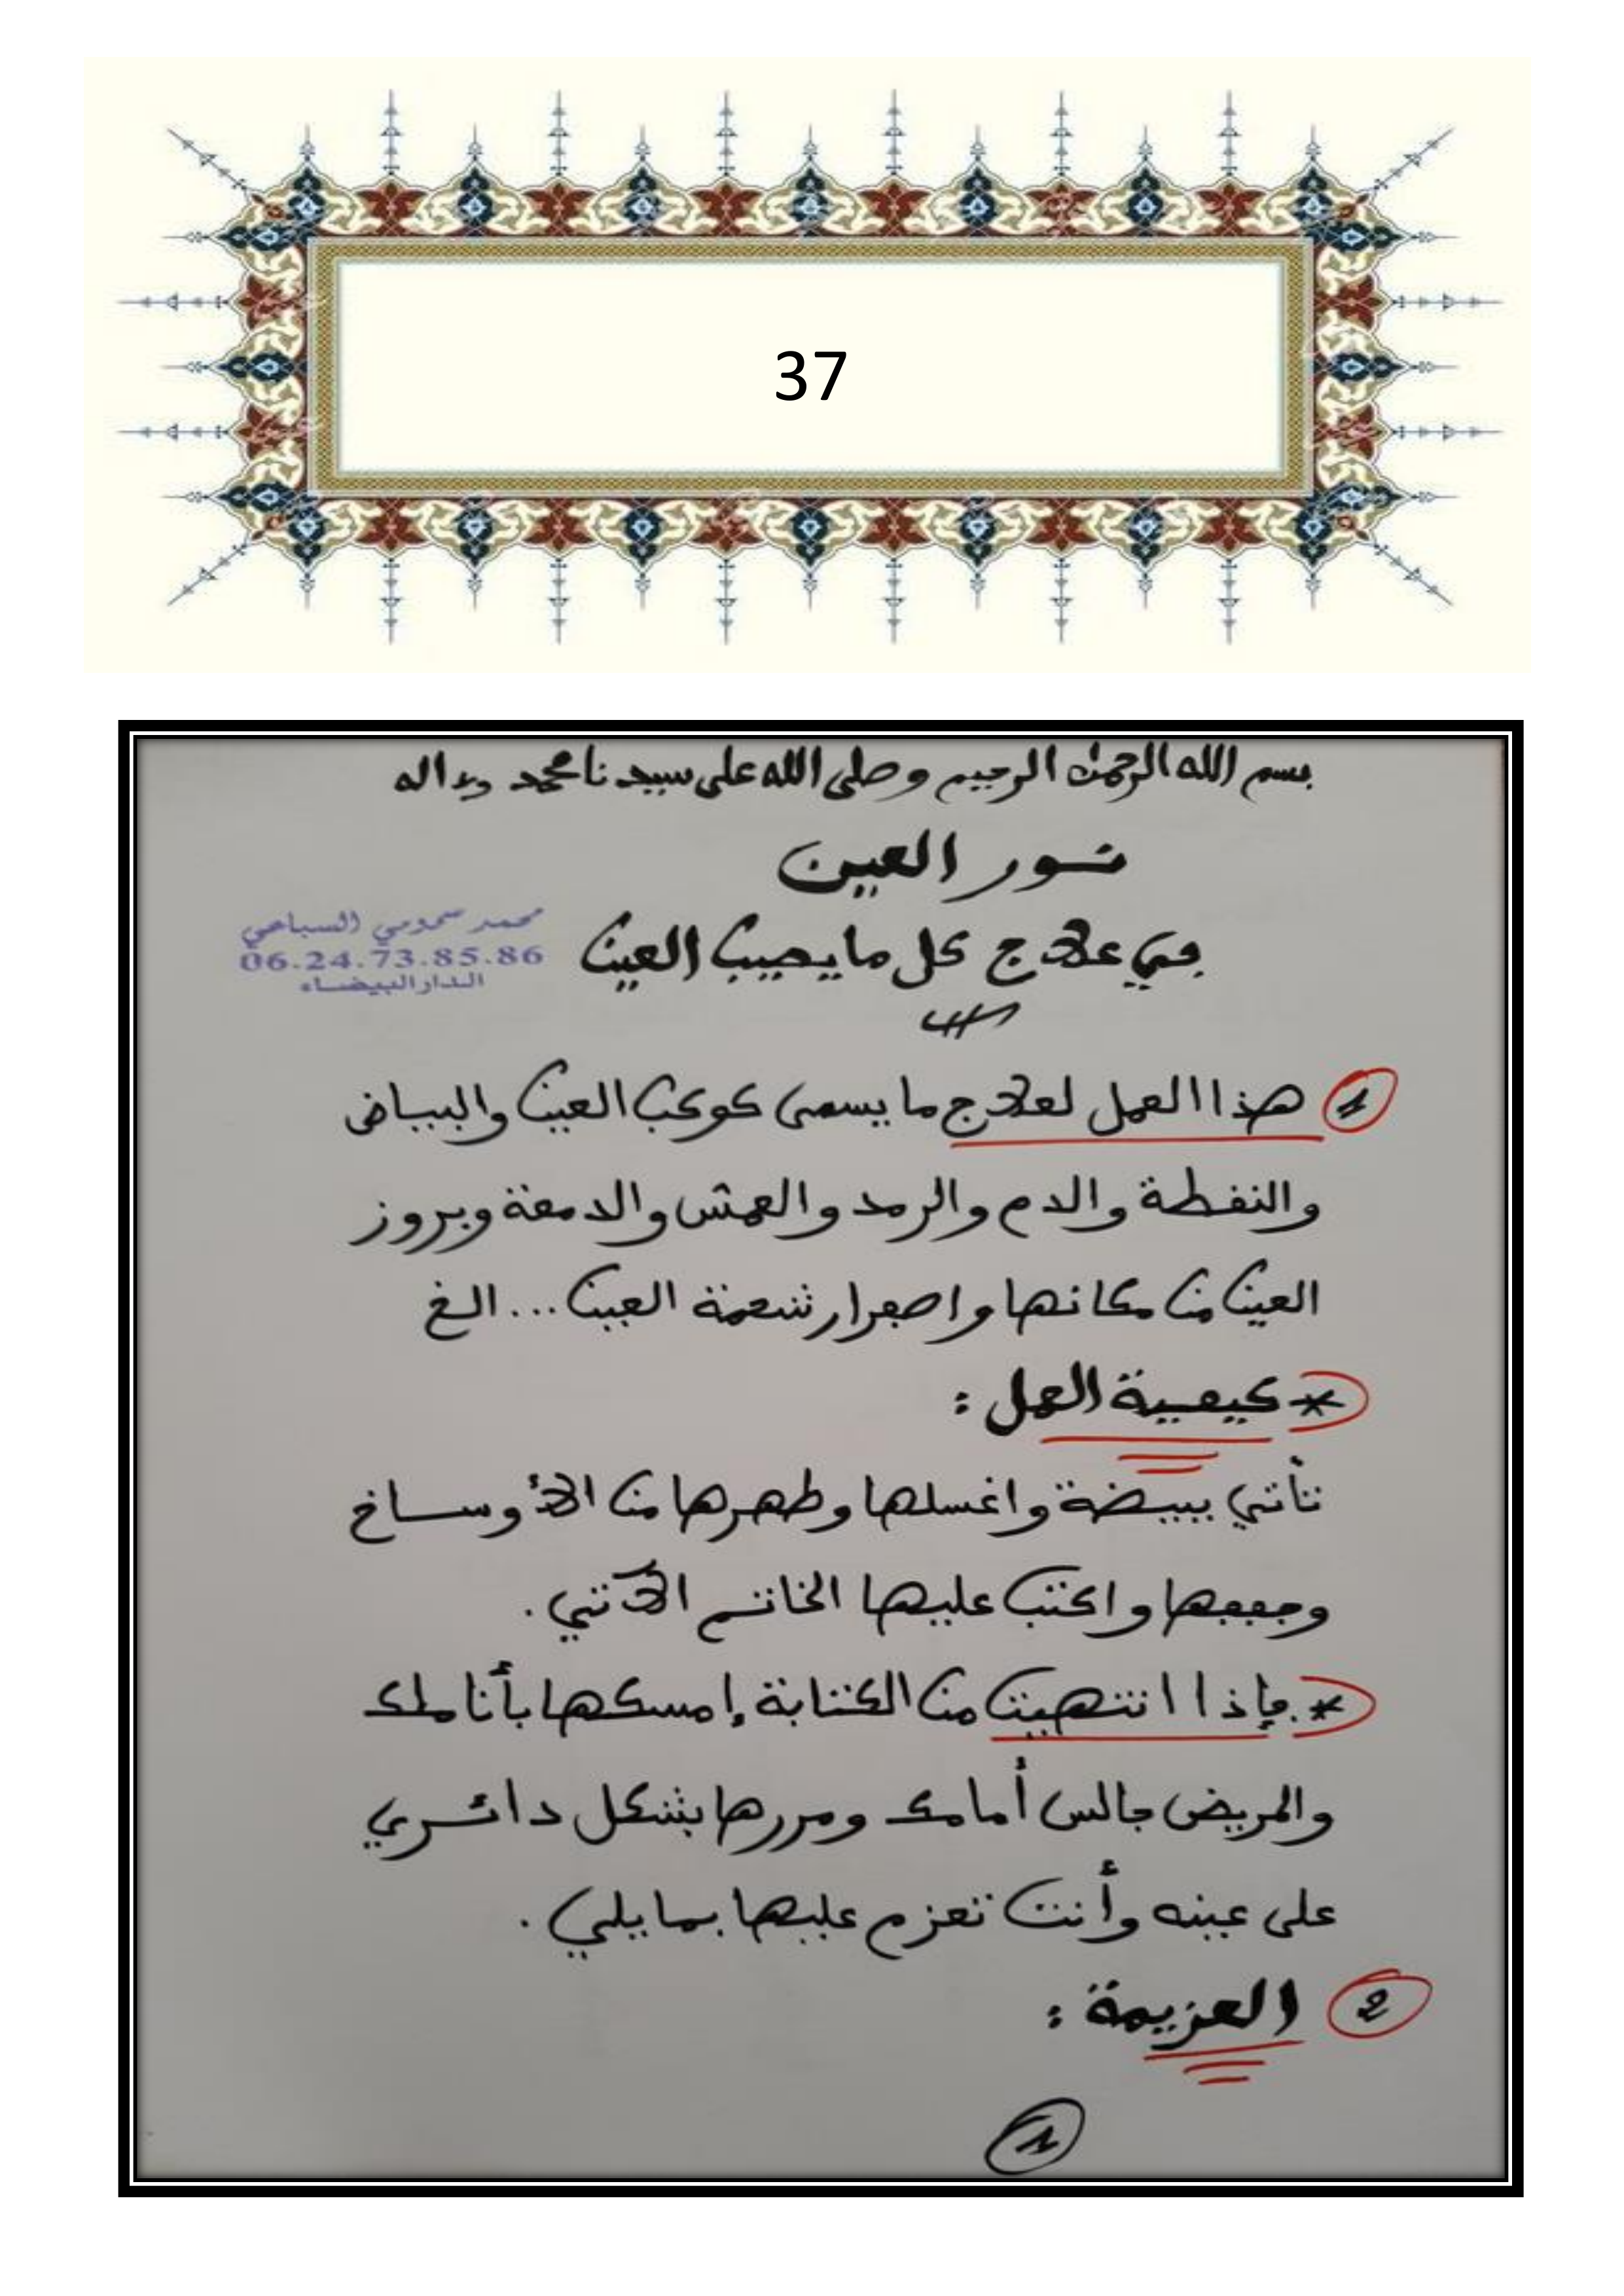 37
بسم الله الرحمن الرحيم وصلى الله على سيدنا محمد وءاله
نور العين
في علاج كل ما يصيب العين
محمد سمومي السباعي
06.24.73.85.86
الدار البيضاء
1 هذا العمل لعلاج ما يسمى كوكب العين والبياض
والنفطة والدم والرمد والعمش والدمعة وبروز
العين من مكانها واصفرار شحمة العين ... الخ
* كيفية العمل :
تأتي ببيضة واغسلها وطهرها من الأوساخ
وجففها واكتب عليها الخاتم الآتي .
* فإذا انتهيت من الكتابة إمسكها بأناملك
والمريض جالس أمامك ومررها بشكل دائري
على عينه وأنت تعزم عليها بما يلي .
2 العزيمة :
1